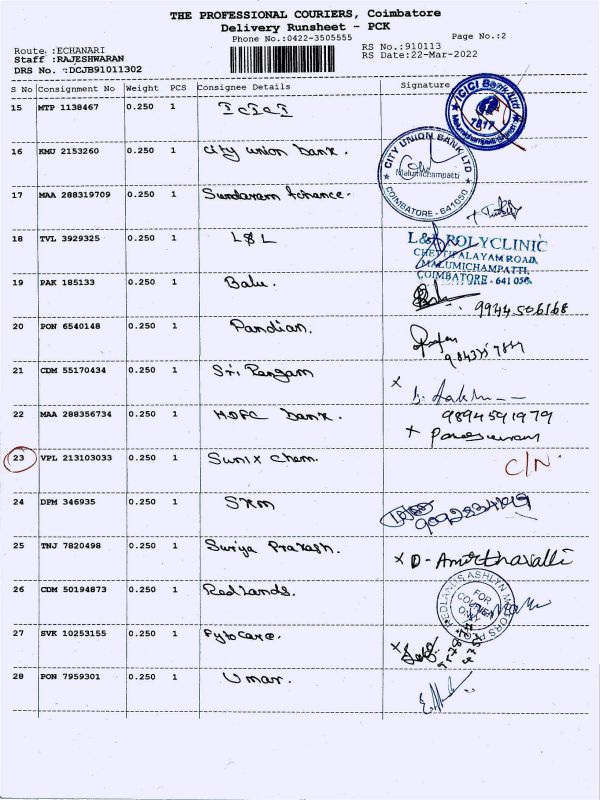 THE PROFESSIONAL COURIERS, Coimbatore
Delivery Runsheet - PCK
Phone No.:0422-3505555
Page No.:2
Route :ECHANARI
Staff :RAJESHWARAN
DRS No. :DCJB91011302
RS No.:910113
RS Date:22-Mar-2022
S No Consignment No Weight PCS Consignee Details Signature
15 MTP 1138467 0.250 1 ICICI
ICICI Bank Ltd
7817
16 KMU 2153260 0.250 1 City union bank.
CITY UNION BANK LTD
Malumichampatti
COIMBATORE - 641050
17 MAA 288319709 0.250 1 Sundaram finance.
18 TVL 3929325 0.250 1 L&L
L&L POLYCLINIC
CHETTIPALAYAM ROAD,
MALUMICHAMPATTI,
COIMBATORE - 641 050.
19 PAK 185133 0.250 1 Balu.
9944506168
20 PON 6540148 0.250 1 Pandian.
21 CDM 55170434 0.250 1 Sri Rangam
x
22 MAA 288356734 0.250 1 HDFC bank.
9894591979
x Parameswaram
23 VPL 213103033 0.250 1 Sunix Chem.
C/N
24 DPM 346935 0.250 1 SKM
25 TNJ 7820498 0.250 1 Suriya Prakash.
x D-Amirthavalli
26 CDM 50194873 0.250 1 Redlands.
REDLANDS ASHLYN MOTORS
FOR
COURIER
ONLY
27 SVK 10253155 0.250 1 Fytocare.
x
28 PON 7959301 0.250 1 Umar.